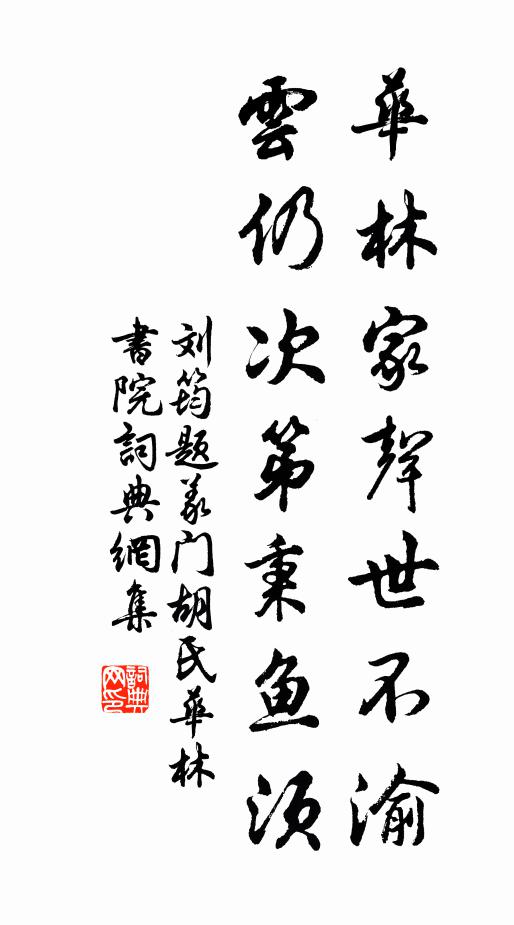 華林家聲世不渝
雲仍次第秉鱼须
刘筠题义门胡氏華林
書院詞典網集
詞典
网印